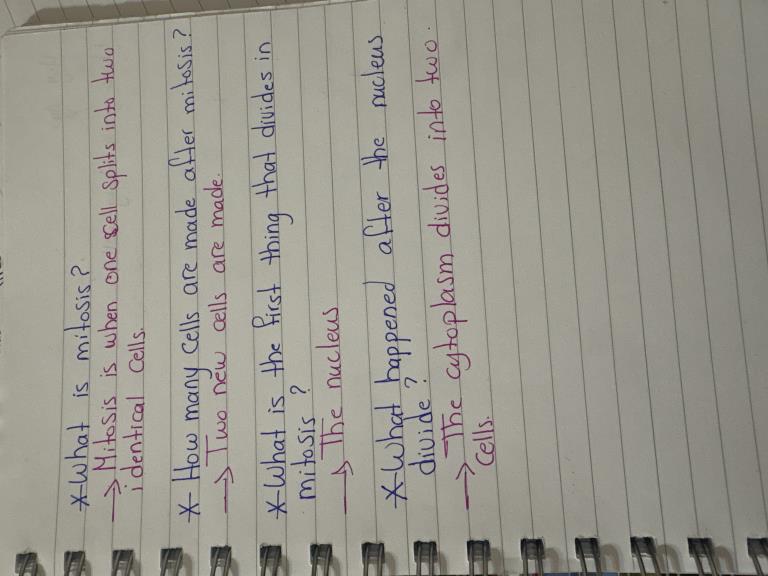 *What is mitosis?
→ Mitosis is when one cell splits into two
identical cells.
* How many cells are made after mitosis?
→ Two new cells are made.
*What is the first thing that divides in
mitosis?
→ The nucleus
*What happened after the nucleus
divide?
→ The cytoplasm divides into two.
cells.